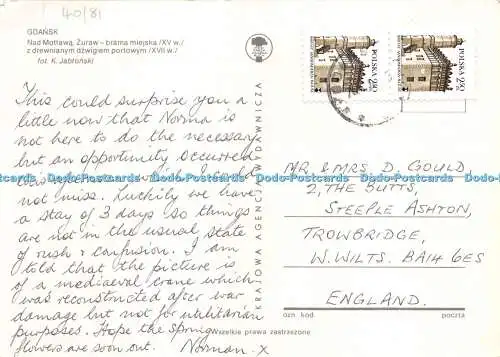 40/81
GDAŃSK
Nad Motławą, Żuraw – brama miejska /XV w./
z drewnianym dźwigiem portowym /XVII w./
fot. K. Jabłoński
This could surprise you a
little now that Norma is
not here to do the necessary
but an opportunity occurred
not miss. Luckily we have
a stay of 3 days so things
are not in the usual state
of rush & confusion. I am
told that the picture is
of a mediaeval crane which
was reconstructed after war
damage but not for utilitarian
purposes. Hope the spring
flowers are soon out. Norman. X
KRAJOWA AGENCJA WYDAWNICZA
Wszelkie prawa zastrzeżone
POLSKA 2,50
POLSKA 2,50
MR & MRS D. GOULD
2, THE BUTTS,
STEEPLE ASHTON,
TROWBRIDGE,
W. WILTS. BA14 6ES
ENGLAND.
ozn kod
poczta
Dodo-Postcards Dodo-Postcards Dodo-Postcards Dodo-Postcards Dodo-Postcards